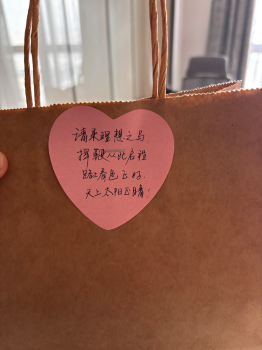 请乘理想之马
挥鞭从此启程
路上春色正好
天上太阳正晴